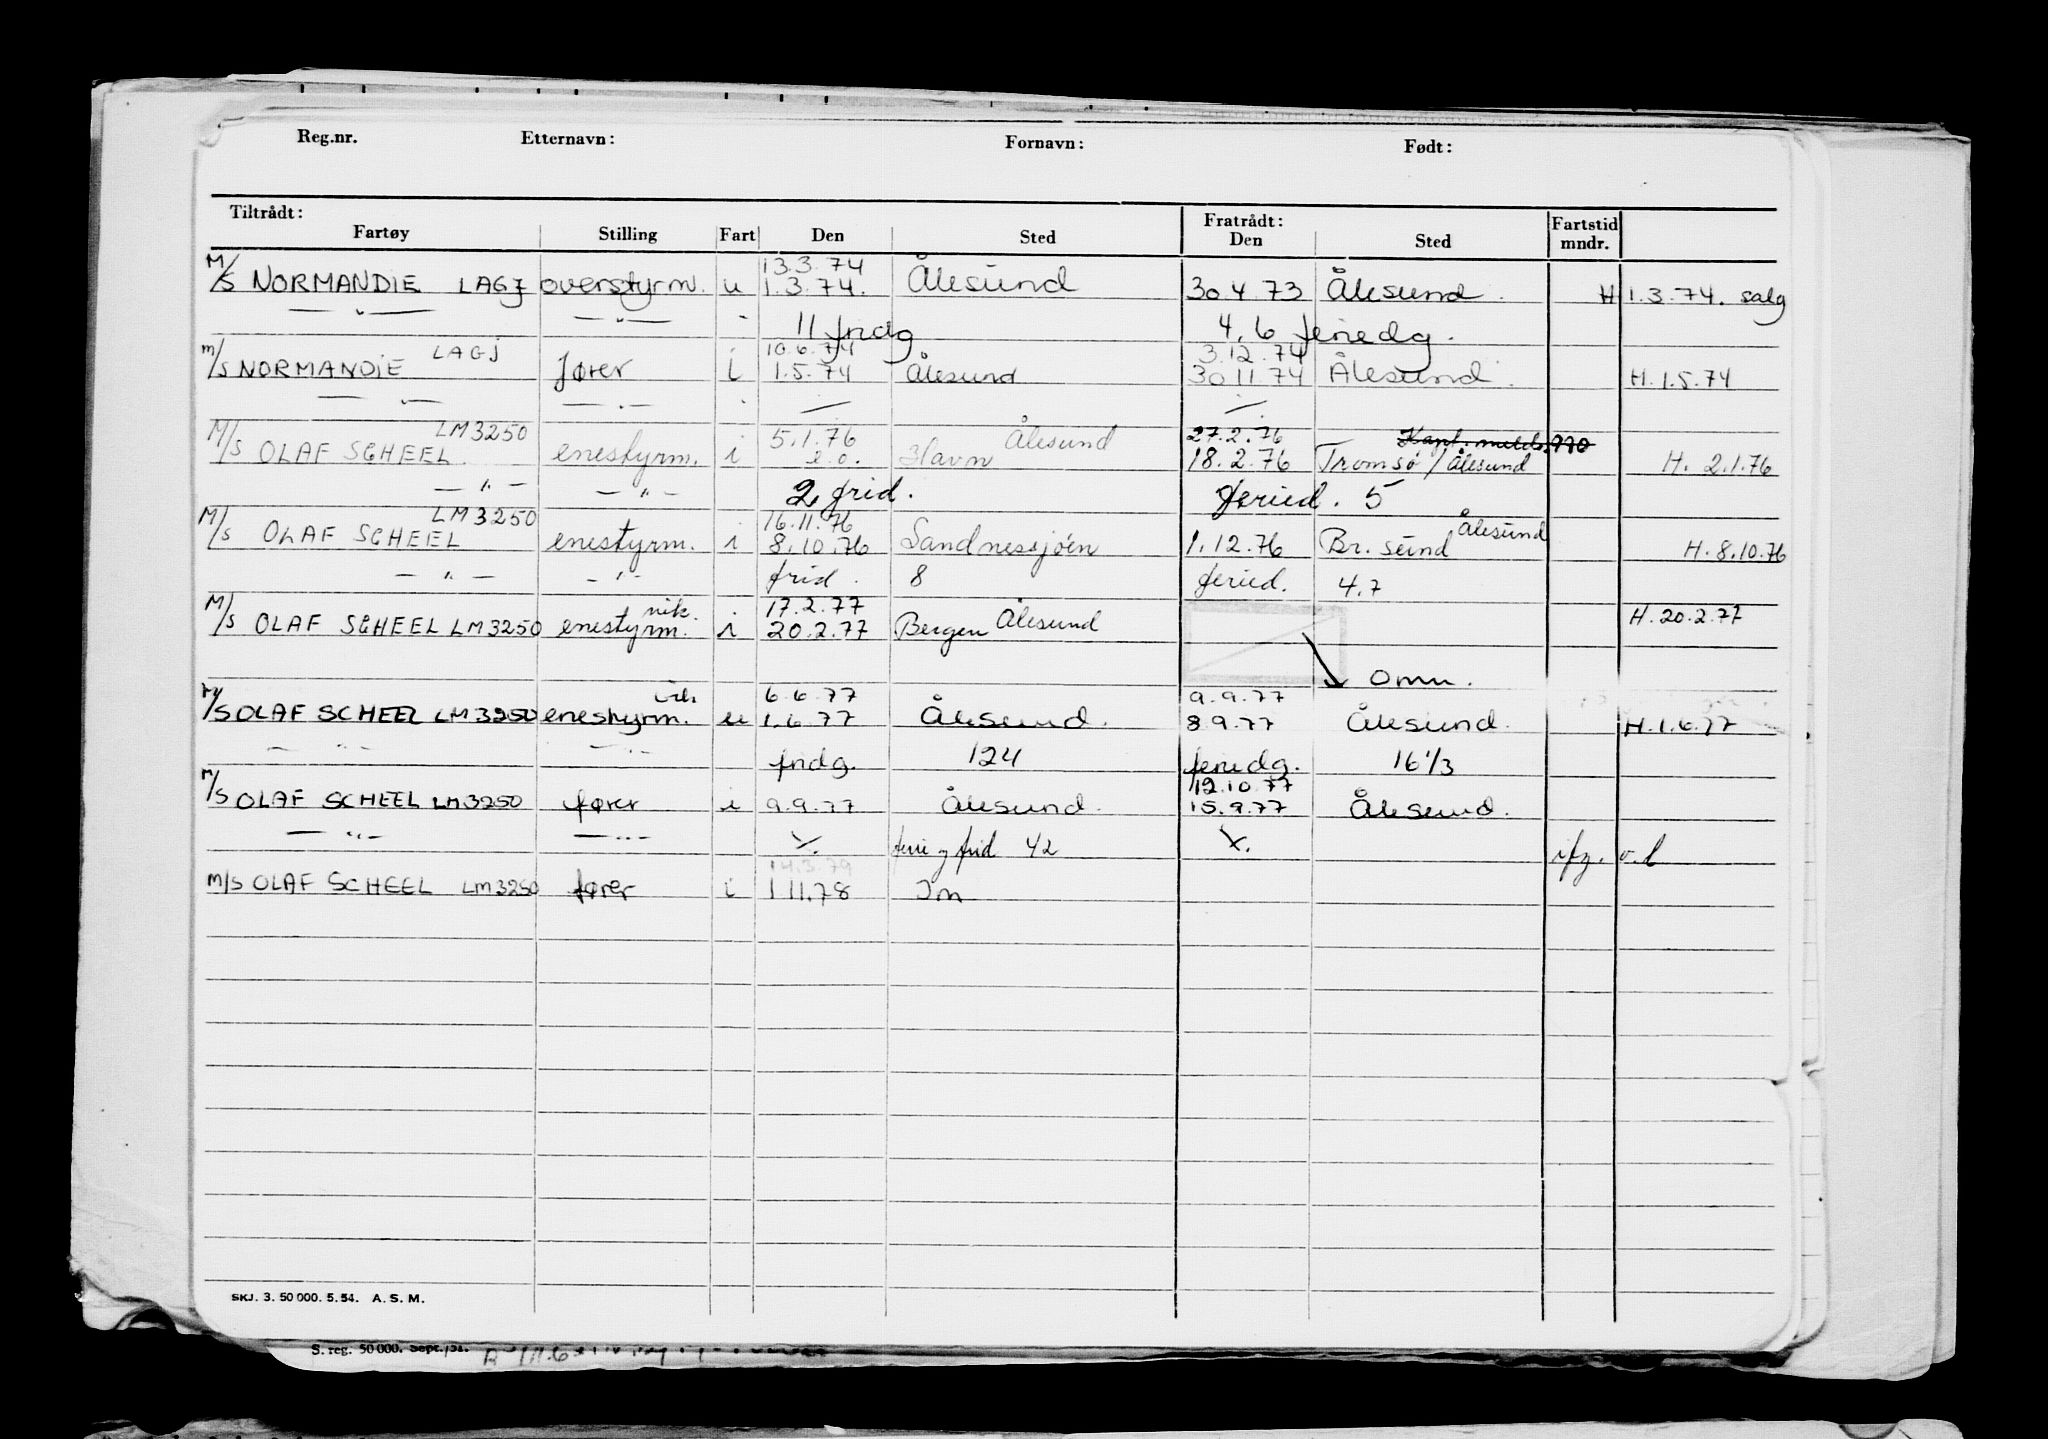 Reg.nr. Etternavn: Fornavn: Født:
Tiltrådt: Fratrådt:
Fartøy Stilling Fart Den Sted Den Sted Fartstid mndr.
13.3.74
M/S NORMANDIE LAGJ overstyrm. u 1.3.74. Ålesund 30.4.73 Ålesund. H 1.3.74. salg
— " — — " — - 11 fridg 4,6 feriedg.
LAGJ 10.6.74 3.12.74
M/S NORMANDIE fører i 1.5.74 Ålesund 30.11.74 Ålesund. H. 1.5.74
— " — — " —
LM3250 5.1.76 Ålesund 27.2.76
M/S OLAF SCHEEL enestyrm. i e.o. Havn 18.2.76 Tromsø / Ålesund H. 2.1.76
— " — — " — 2 frid. feried. 5
LM3250 16.11.76 Ålesund
M/S OLAF SCHEEL enestyrm. i 8.10.76 Sandnessjøen 1.12.76 Br. sund H. 8.10.76
— " — — " — frid. 8 feried. 4,7
vik. 17.2.77 Ålesund H. 20.2.77
M/S OLAF SCHEEL LM3250 enestyrm. i 20.2.77 Bergen
omm.
vik. 6.6.77 9.9.77
M/S OLAF SCHEEL LM3250 enestyrm. u 1.6.77 Ålesund. 8.9.77 Ålesund. H. 1.6.77
— " — — " — fridg. 124 feriedg. 16 1/3
12.10.77
M/S OLAF SCHEEL LM3250 fører i 9.9.77 Ålesund. 15.9.77 Ålesund.
— " — — " — ferie og frid 42 ifg. o.l
14.3.79
M/S OLAF SCHEEL LM3250 fører i 1.11.78
SKJ. 3. 50 000. 5. 54. A. S. M.
S. reg. 50 000. Sept.